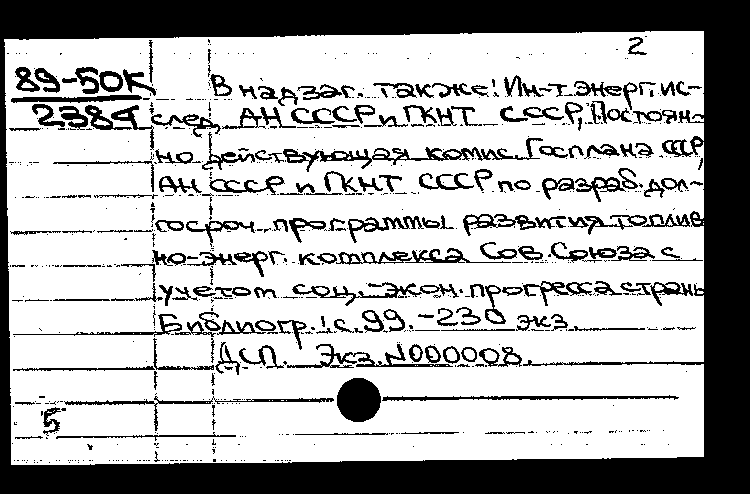 2
89-50К
2384
В надзаг. также: Ин-т энерг. ис-
след. АН СССР и ГКНТ СССР, Постоян-
но действующая комис. Госплана СССР,
АН СССР и ГКНТ СССР по разраб. дол-
госроч. программы развития топлив
но-энерг. комплекса Сов. Союза с
учетом соц.-экон. прогресса страны
Библиогр.: с. 99. -230 экз.
ДСП. Экз. N000008.
5